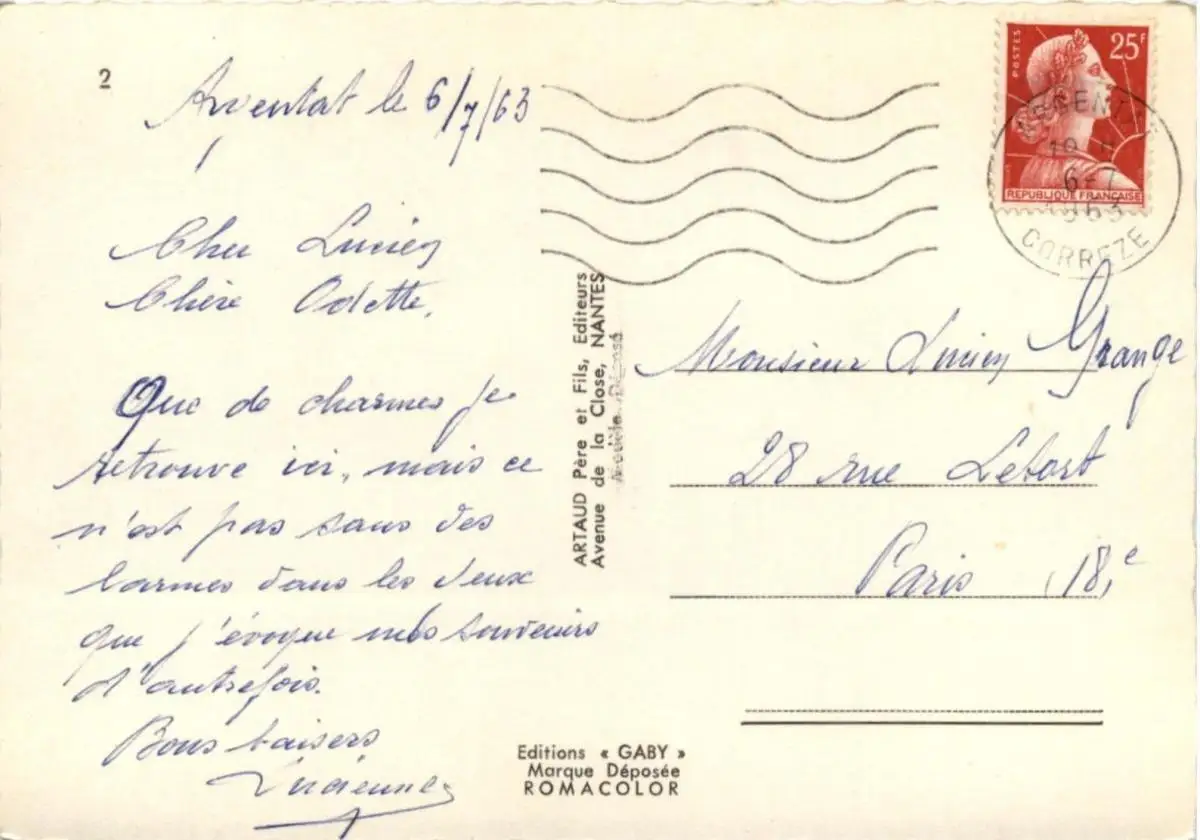 2
Argentat le 6/7/63
Cher Lucien
Chère Odette,
Que de charmes je
retrouve ici, mais ce
n'est pas sans des
larmes dans les yeux
que j'évoque mes souvenirs
d'autrefois.
Bons baisers
Lucienne
ARTAUD Père et Fils, Editeurs
Avenue de la Close, NANTES
Modèle Déposé
Editions « GABY »
Marque Déposée
ROMACOLOR
POSTES
25F
REPUBLIQUE FRANÇAISE
6-7
1963
CORREZE
Monsieur Lucien Grange
28 rue Letort
Paris 18e